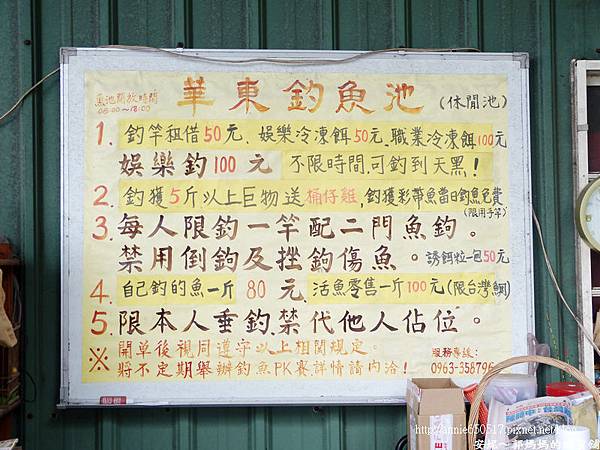 華東釣魚池(休閒池)
魚池開放時間
06:00～18:00
1.釣竿租借50元、娛樂冷凍餌50元、職業冷凍餌100元
娛樂釣100元 不限時間,可釣到天黑!
2.釣獲5斤以上巨物送桶仔雞,釣獲彩帶魚當日釣魚免費
(限用手竿)
3.每人限釣一竿配二門魚鉤。
禁用倒鉤及挫鉤傷魚。誘餌粒一包50元
4.自己釣的魚一斤80元、活魚零售一斤100元(限台灣鯛)
5.限本人垂釣、禁代他人佔位。
※開單後視同遵守以上相關規定。
將不定期舉辦釣魚PK賽,詳情請內洽!
服務專線:
0963-35879
http://annie650517.pixnet.net/blog